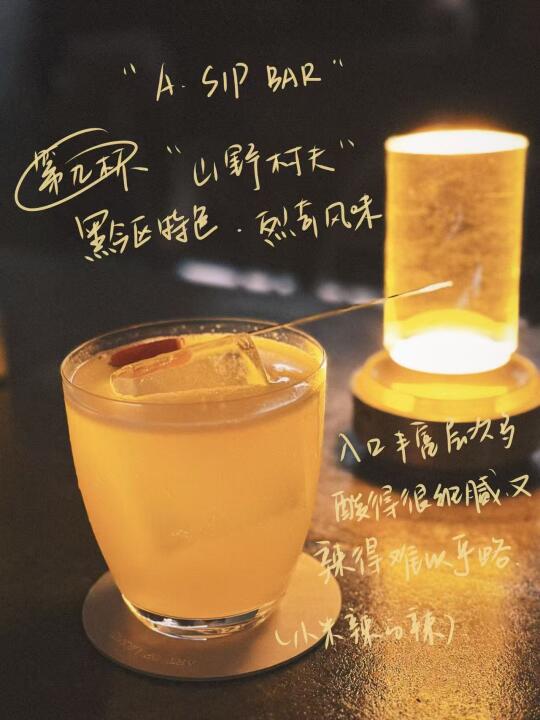 "A. SIP BAR"
第九杯 "山野村夫"
黔区特色 . 风味
入口丰富层次多
酸得很细腻.又
辣得难以乎略.
(小米辣的辣)